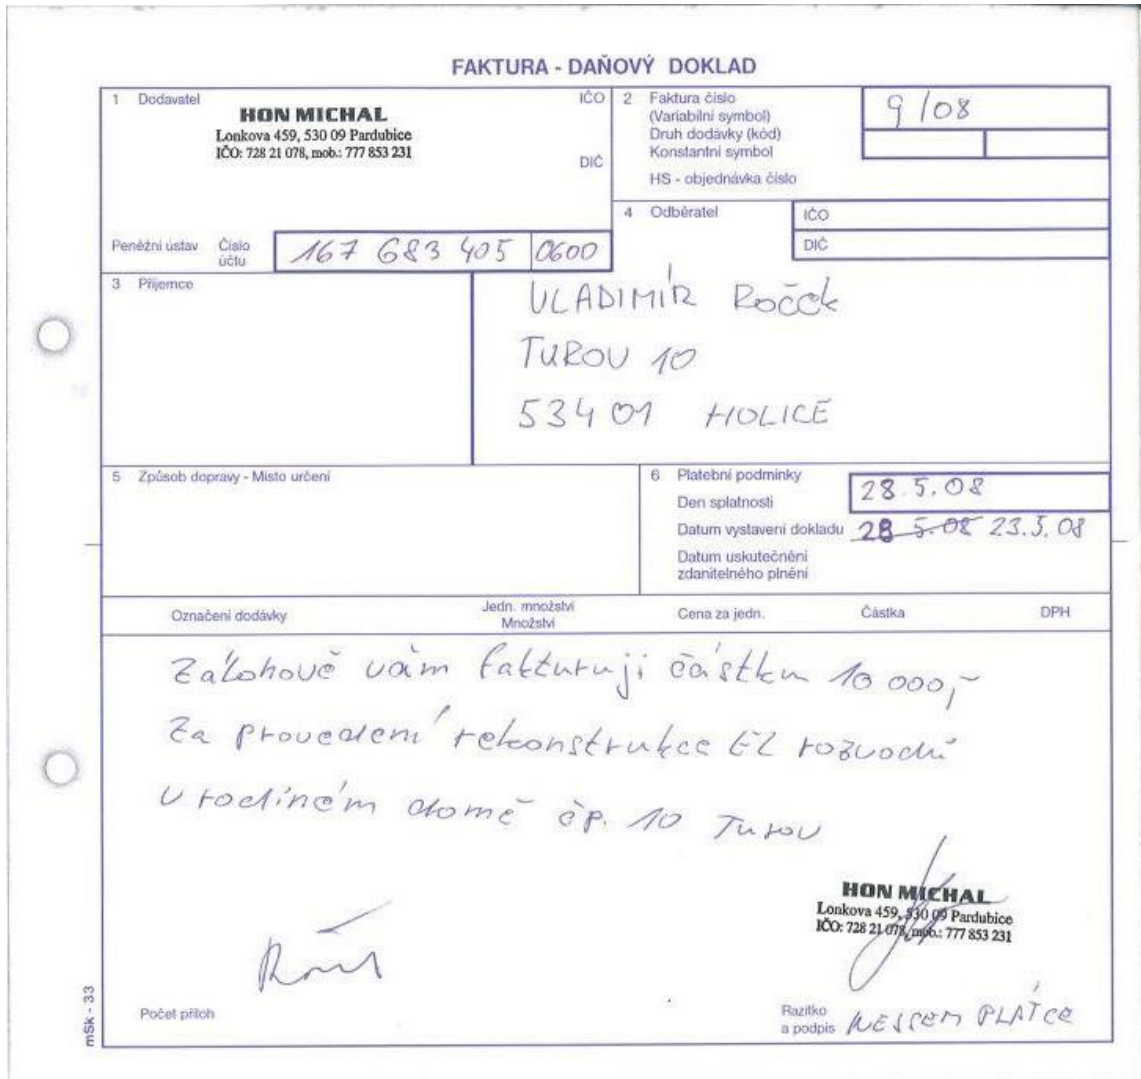 FAKTURA - DAŇOVÝ DOKLAD
1 Dodavatel
IČO
HON MICHAL
Lonkova 459, 530 09 Pardubice
IČO: 728 21 078, mob.: 777 853 231
DIČ
Peněžní ústav Číslo účtu 167 683 405 0600
2 Faktura číslo 9/08
(Variabilní symbol)
Druh dodávky (kód)
Konstantní symbol
HS - objednávka číslo
4 Odběratel
IČO
DIČ
3 Příjemce
VLADIMÍR
TUROV 10
534 01 HOLICE
5 Způsob dopravy - Místo určení
6 Platební podmínky
Den splatnosti 28.5.08
Datum vystavení dokladu 28 5.08 23.5.08
Datum uskutečnění
zdanitelného plnění
Označení dodávky Jedn. množství Cena za jedn. Částka DPH
Množství
Zálohově vám fakturuji částku 10 000,-
Za provedení rekonstrukce EL rozvodů
V rodiném domě čp. 10 Turov
HON MICHAL
Lonkova 459, 530 09 Pardubice
IČO: 728 21 078, mob.: 777 853 231
Počet příloh
Razítko
a podpis NESSEM PLÁTCE
mSk - 33